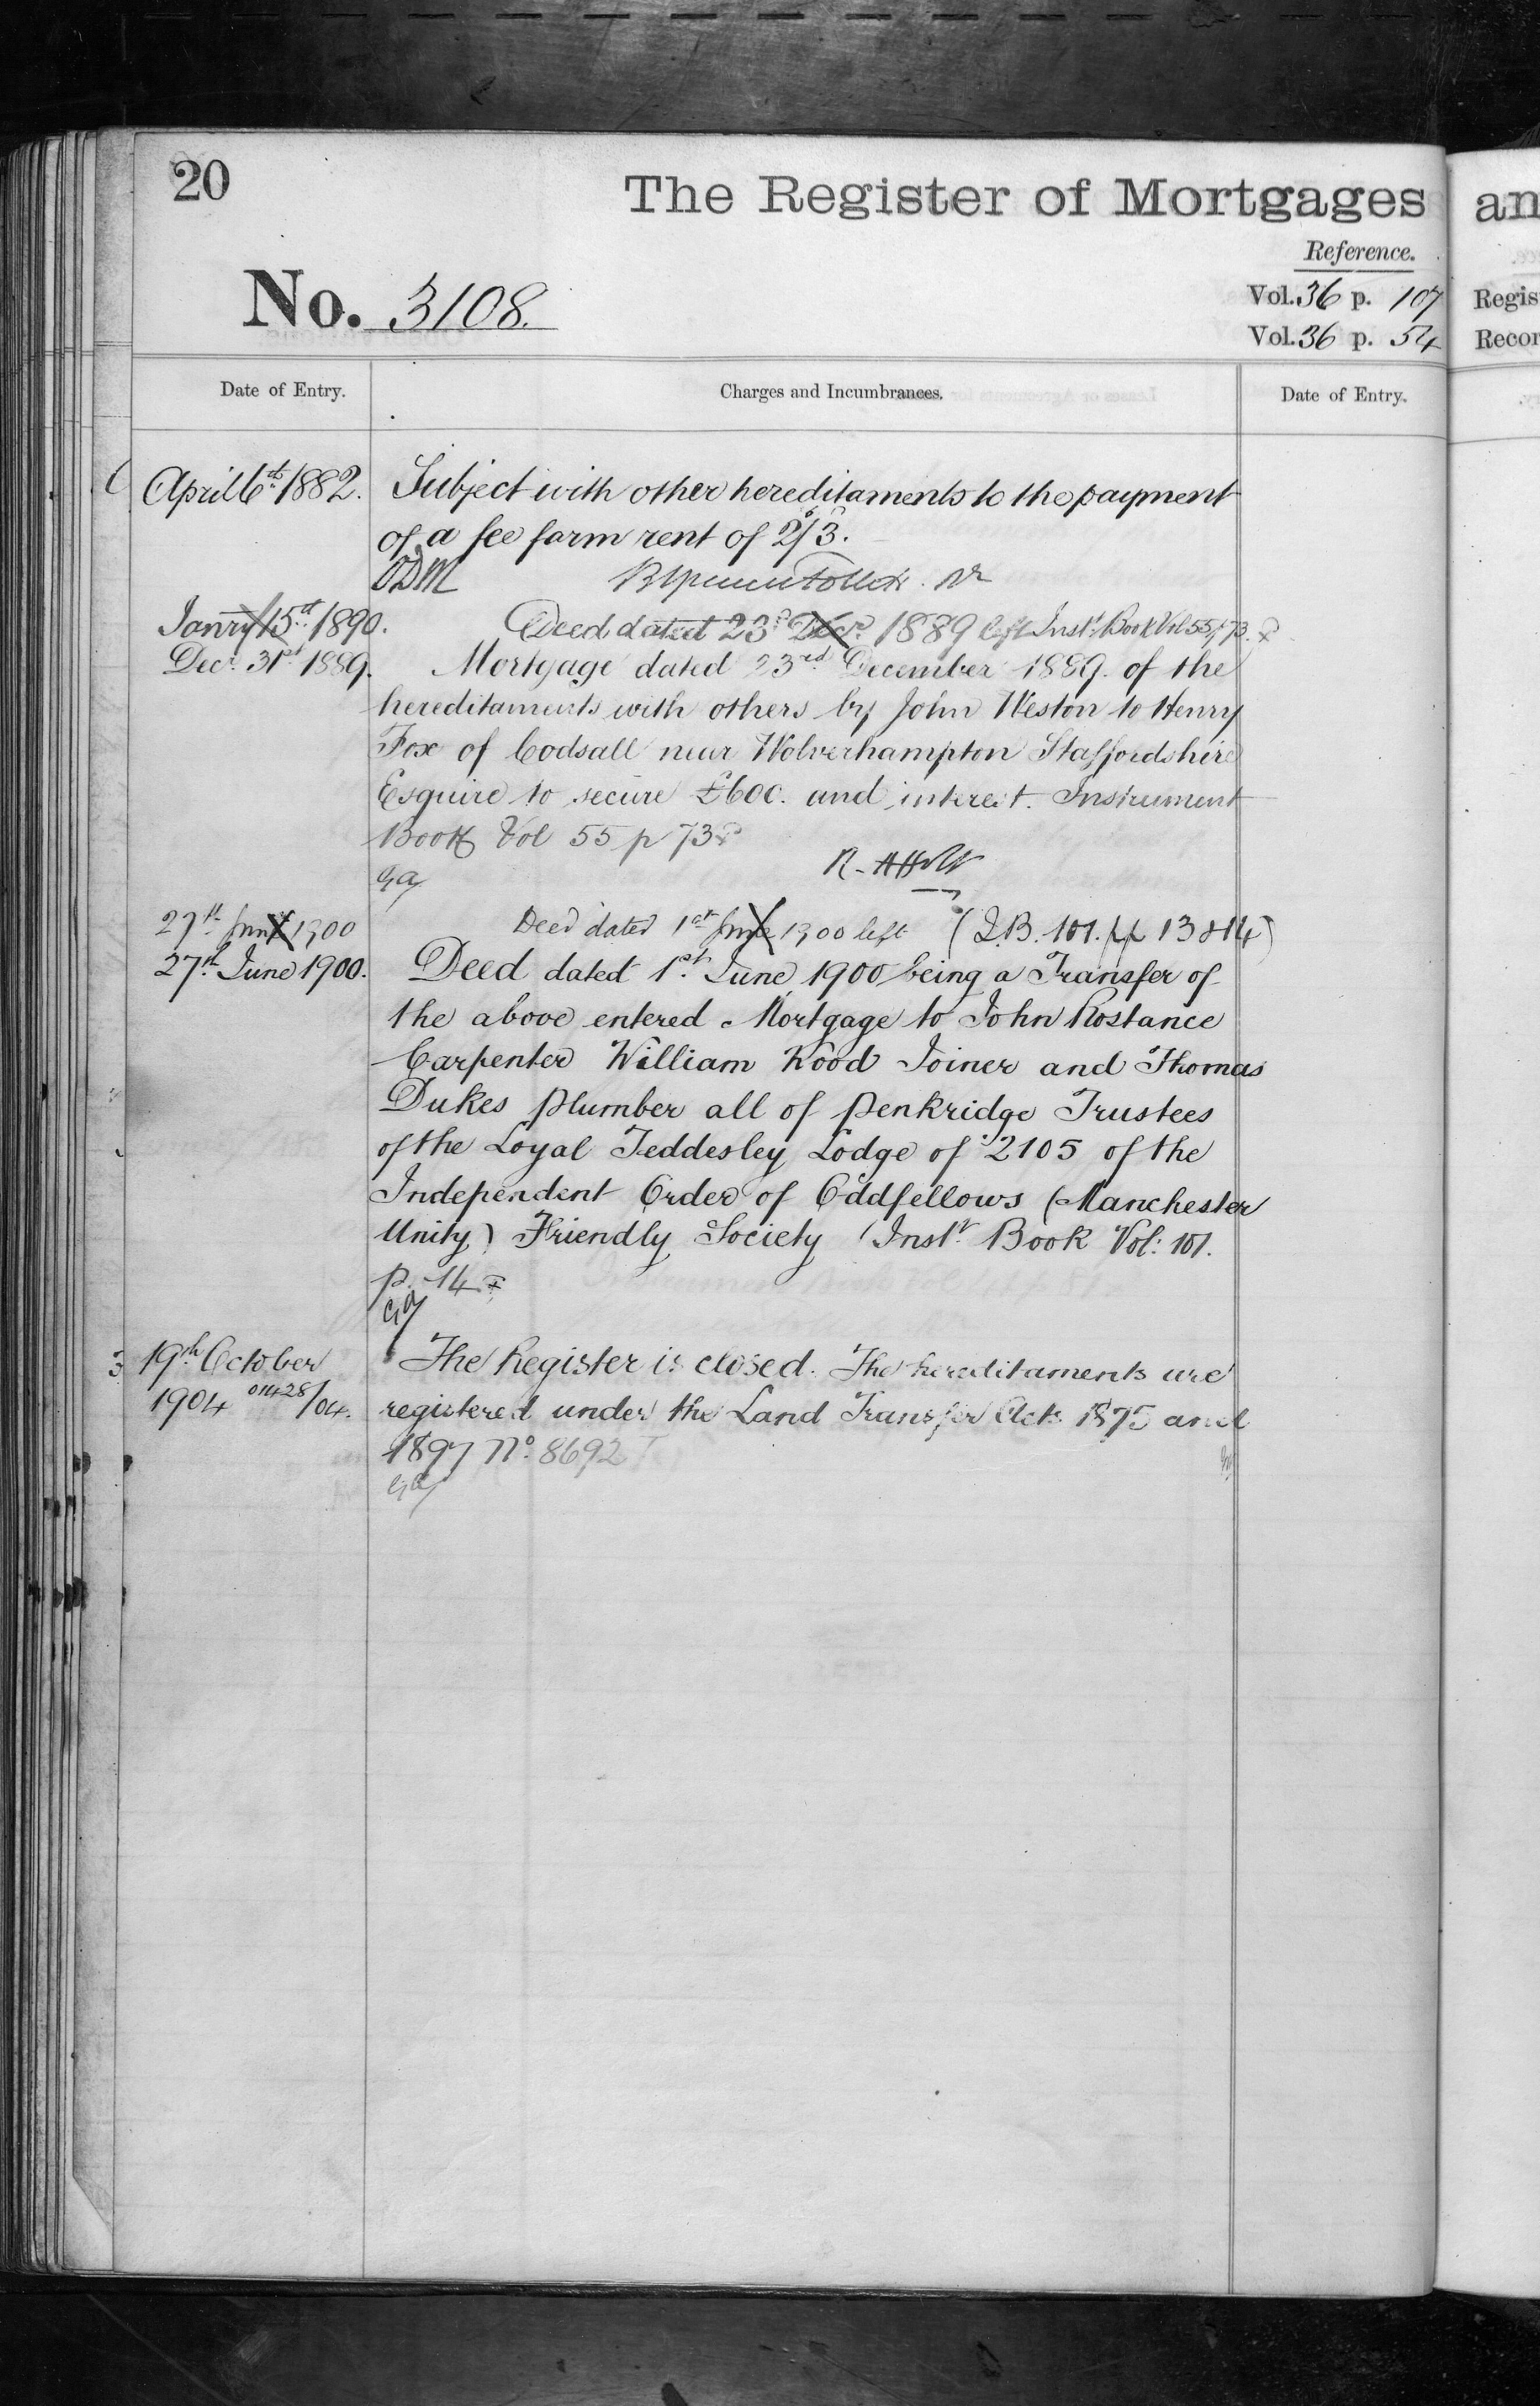 20
The Register of Mortgages
an
Reference.
No. 3108.
Vol. 36 p. 107
Regis
Vol. 36 p. 54
Recor
Date of Entry.
Charges and Incumbrances.
Date of Entry.
April 6th 1882.
Subject with other hereditaments to the payment
of a fee farm rent of 2/3.
ODM
Janry 15th 1890.
Deed dated 23d Decr 1889 left Inst. Book Vol 55 p 73.
Decr 31st 1889.
Mortgage dated 23rd December 1889. of the
hereditaments with others by John Weston to Henry
Fox of Codsall near Wolverhampton Staffordshire
Esquire to secure £600. and interest. Instrument
Book Vol 55 p 73
27th June 1900
Deed dated 1st June 1900 left (I.B. 101. pp 13 & 14)
27th June 1900.
Deed dated 1st June 1900 being a Transfer of
the above entered Mortgage to John Rostance
Carpenter William Wood Joiner and Thomas
Dukes Plumber all of Penkridge Trustees
of the Loyal Teddesley Lodge of 2105 of the
Independent Order of Oddfellows (Manchester
Unity) Friendly Society (Instr Book Vol: 101.
p. 14
19th October
The Register is closed. The hereditaments are
1904 011428/04.
registered under the Land Transfer Acts 1875 and
1897 No. 8692